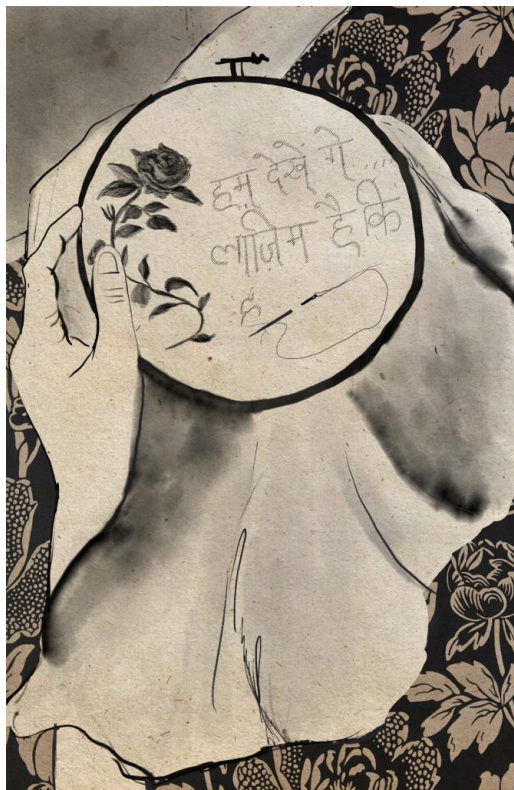 हम देखें गे ....
लाज़िम है कि
ह